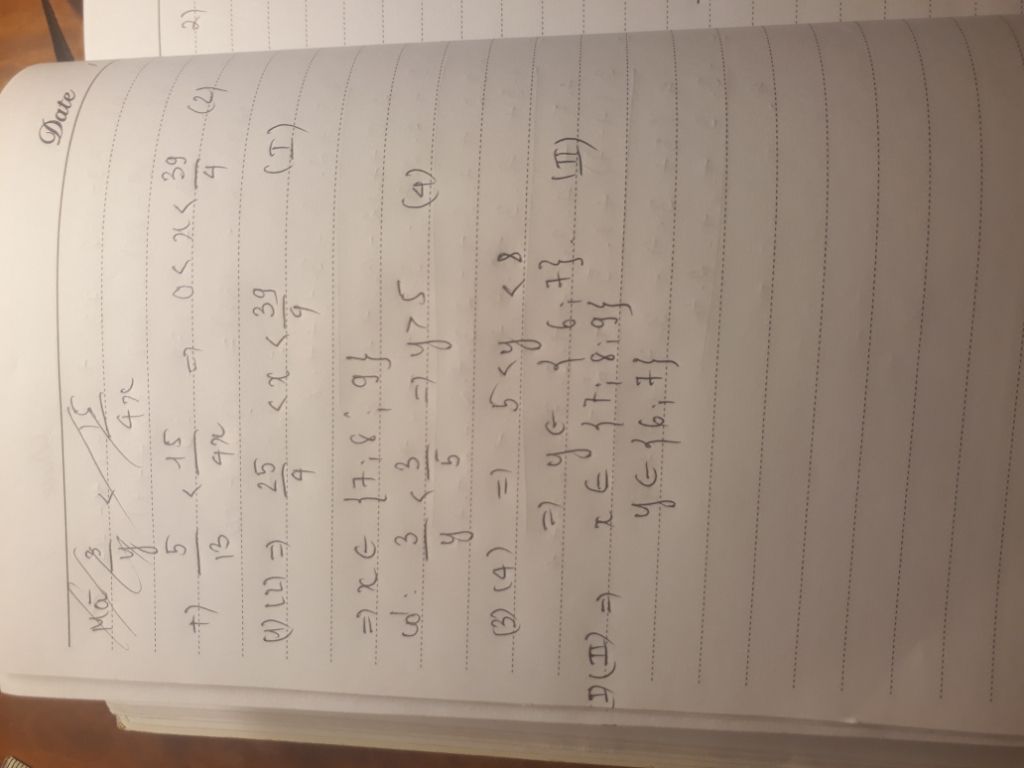 Date
Mà 3/y < 15/4x
+) 5/13 < 15/4x => 0 < x < 39/4 (2)
(1)(2) => 25/4 < x < 39/4 (I)
=> x ∈ {7; 8; 9}
có: 3/y < 3/5 => y > 5 (4)
(3)(4) => 5 < y < 8
=> y ∈ {6; 7} (II)
I)(II) => x ∈ {7; 8; 9}
y ∈ {6; 7}
2)